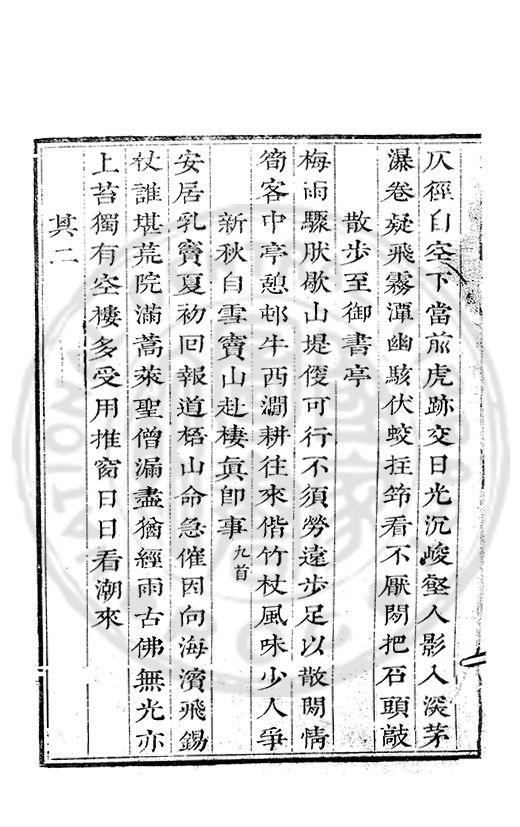 仄徑自空下當前虎跡交日光沉峻壑人影入深茅
瀑卷疑飛霧潭幽駭伏蛟拄筇看不厭閒把石頭敲
散步至御書亭
梅雨驟朕歇山堤僾可行不須勞遠步足以散閒情
筍客中亭憩邨牛西澗耕往來偕竹杖風味少人爭
新秋自雪竇山赴棲眞即事九首
安居乳竇夏初回報道梧山命急催因向海濱飛錫
杖誰堪荒院滿蒿萊聖僧漏盡猶經雨古佛無光亦
上苔獨有空樓多受用推窗日日看潮來
其二